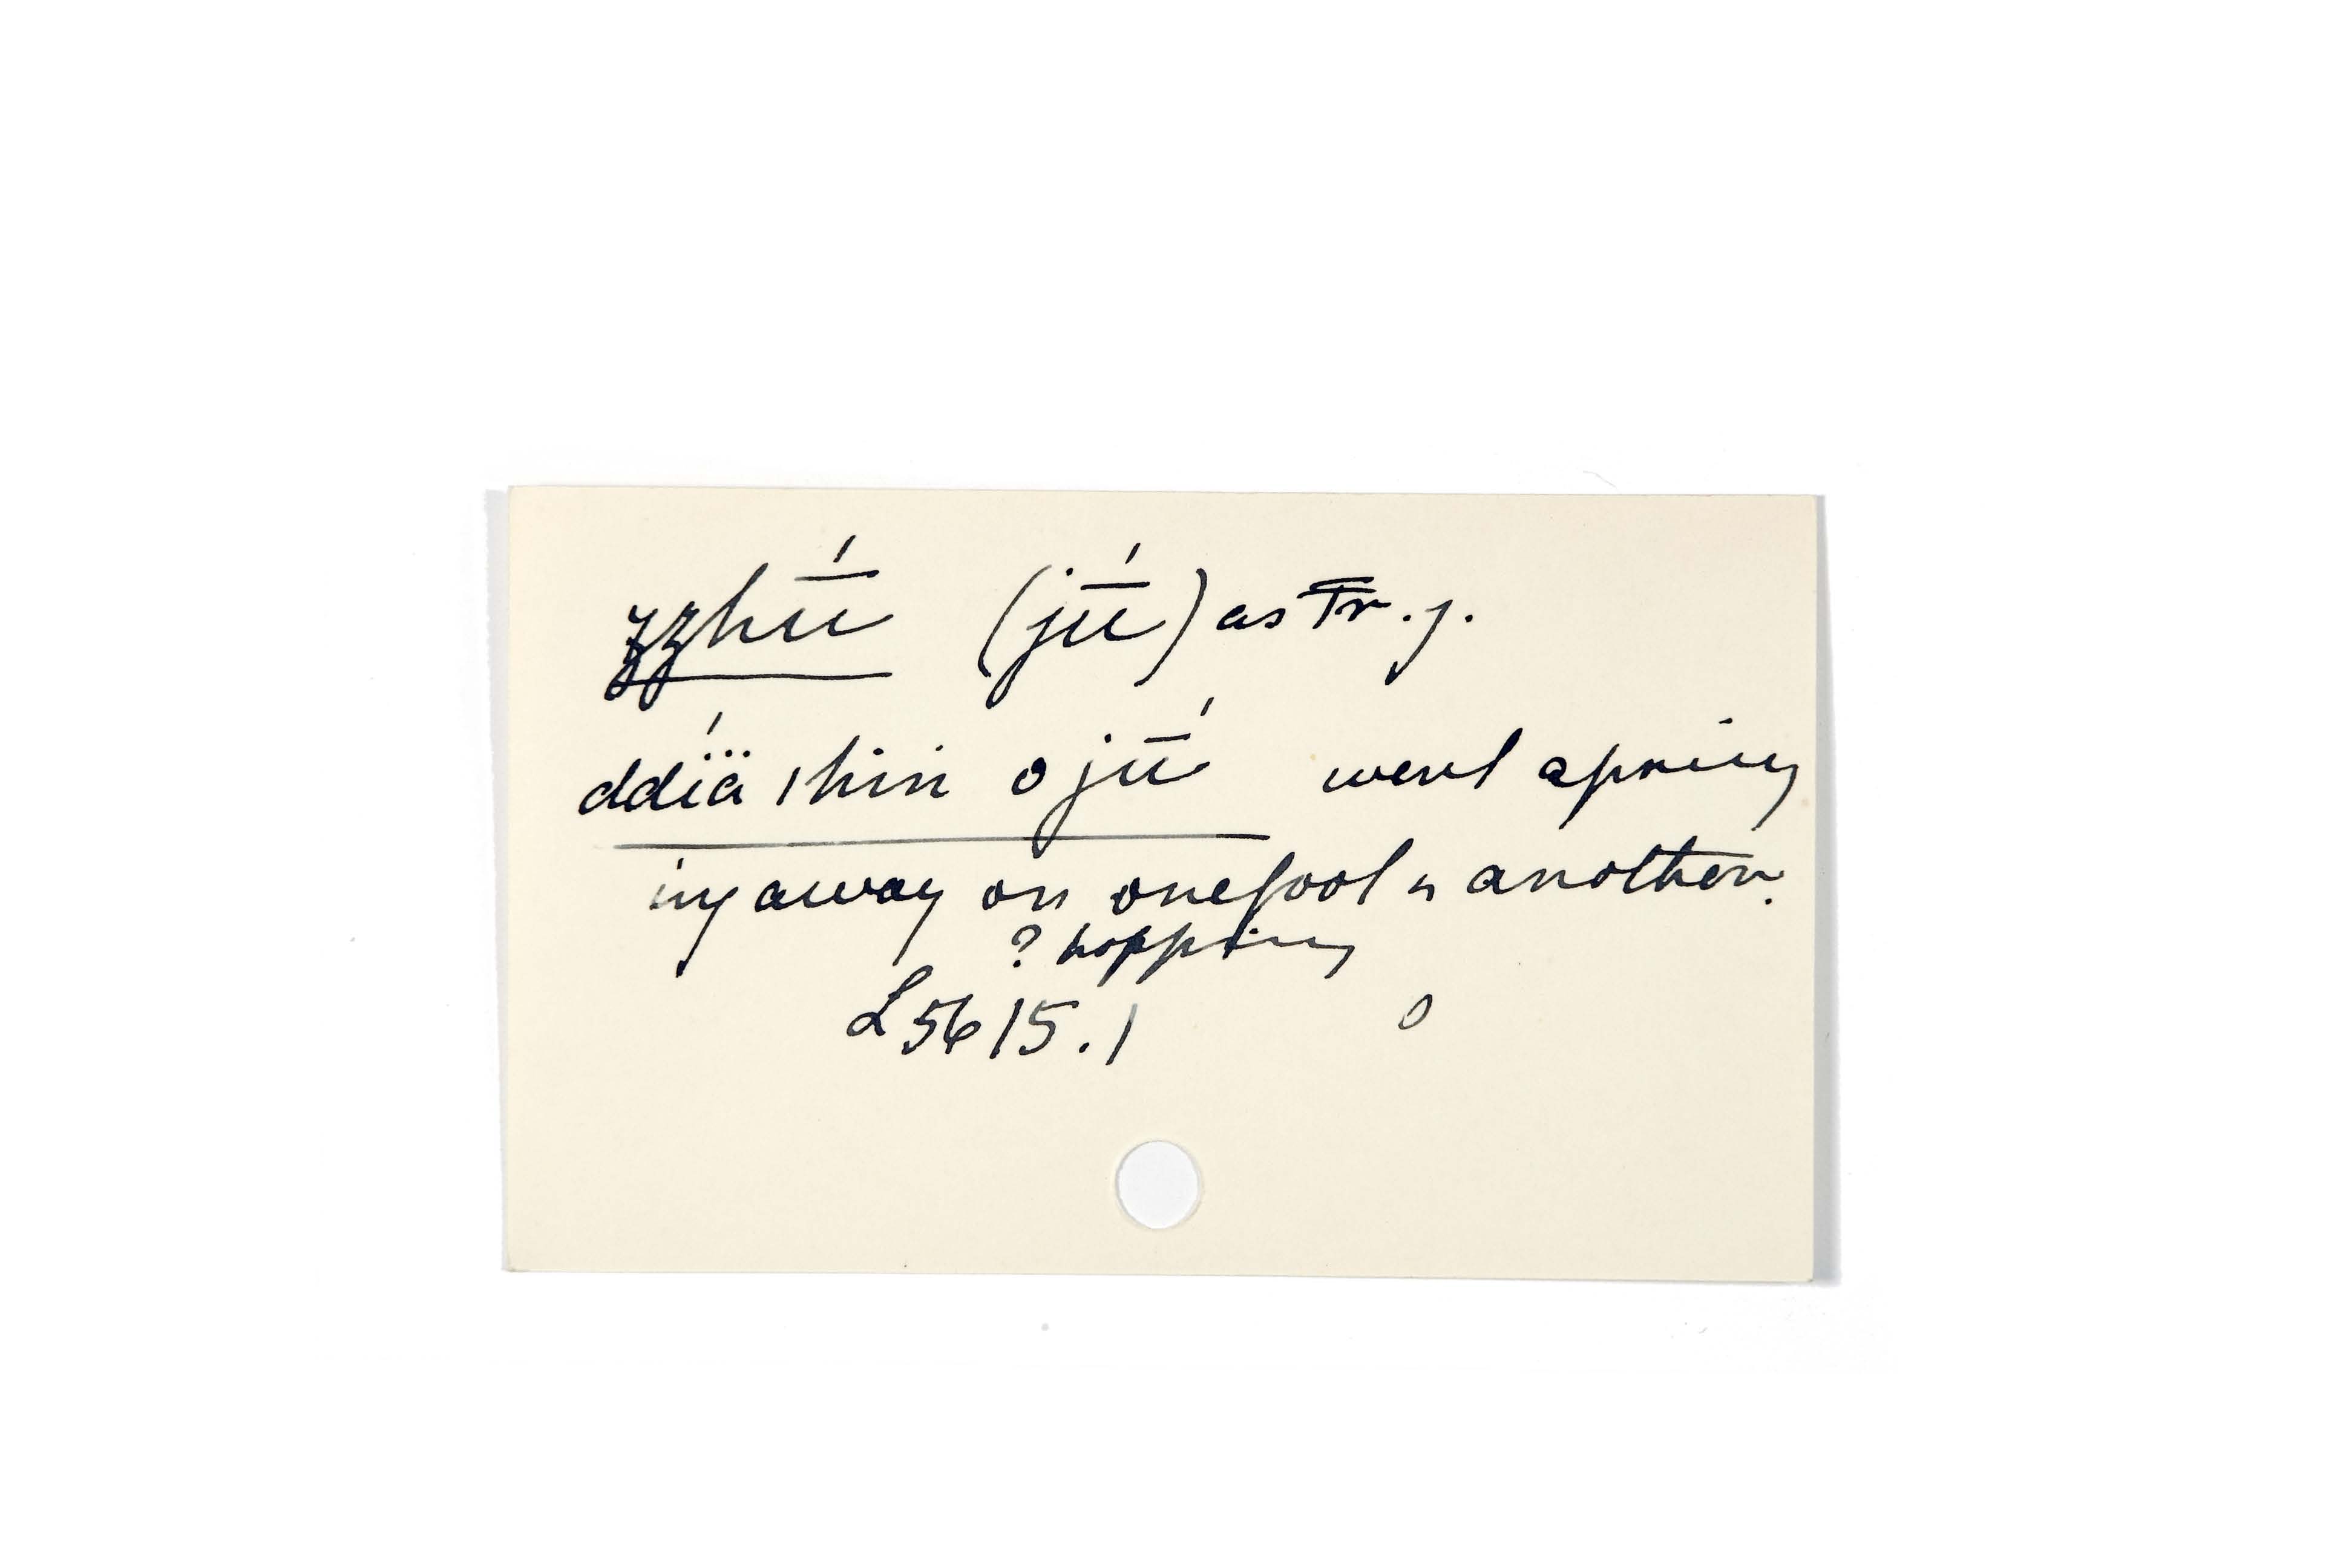 zzhū́ (jū́) as Fr. j.
ddíä ʹhin o jū́ went spring
ing away on onefoot n another.
? hopping
L5615.1 0